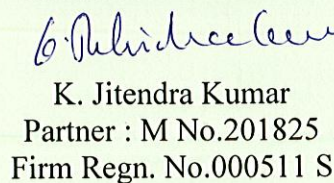 K. Jitendra Kumar
Partner : M No.201825
Firm Regn. No.000511 S